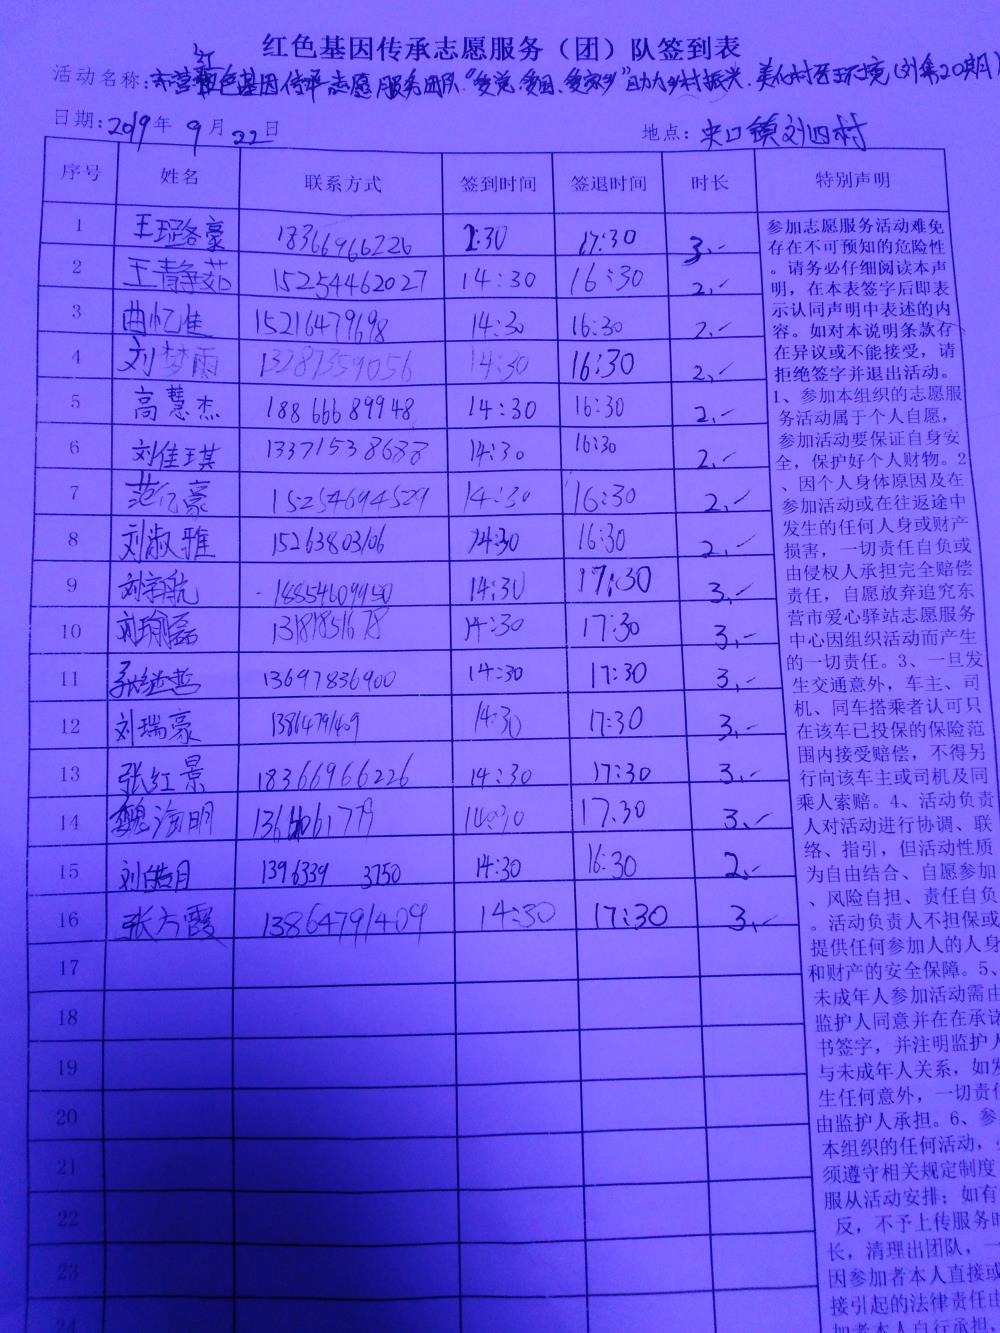 红色基因传承志愿服务（团）队签到表
活动名称:东营红色基因传承志愿服务团队"爱党、爱国、爱家乡"助力乡村振兴、美化村居环境(刘集20期)
日期:2019年9月22日 地点:史口镇刘四村
序号 姓名 联系方式 签到时间 签退时间 时长 特别声明
1 豪 18366966226 :30 17:30 3
2 王静茹 15254462027 14:30 16:30 2
3 曲忆佳 15216479698 14:30 16:30 2
4 刘梦雨 13287359056 14:30 16:30 2
5 高慧杰 18866689948 14:30 16:30 2
6 刘佳琪 13371538688 14:30 16:30 2
7 范亿豪 15254694529 14:30 16:30 2
8 刘淑雅 15263803106 14:30 16:30 2
9 刘宇航 18854609950 14:30 17:30 3
10 刘瑜磊 13181851678 14:30 17:30 3
11 张继哲 13697836900 14:30 17:30 3
12 刘瑞豪 13864791409 14:30 17:30 3
13 张红景 18366966226 14:30 17:30 3
14 魏海明 14:30 17.30 3
15 刘皓月 1396339 3750 14:30 16:30 2
16 张方霞 13864791409 14:30 17:30 3
17
18
19
20
21
22
23
24
参加志愿服务活动难免
存在不可预知的危险性
。请务必仔细阅读本声
明，在本表签字后即表
示认同声明中表述的内
容。如对本说明条款存
在异议或不能接受，请
拒绝签字并退出活动。
1、参加本组织的志愿服
务活动属于个人自愿，
参加活动要保证自身安
全，保护好个人财物。2
、因个人身体原因及在
参加活动或在往返途中
发生的任何人身或财产
损害，一切责任自负或
由侵权人承担完全赔偿
责任，自愿放弃追究东
营市爱心驿站志愿服务
中心因组织活动而产生
的一切责任。3、一旦发
生交通意外，车主、司
机、同车搭乘者认可只
在该车已投保的保险范
围内接受赔偿，不得另
行向该车主或司机及同
乘人索赔。4、活动负责
人对活动进行协调、联
络、指引，但活动性质
为自由结合、自愿参加
、风险自担、责任自负
。活动负责人不担保或
提供任何参加人的人身
和财产的安全保障。5、
未成年人参加活动需由
监护人同意并在在承诺
书签字，并注明监护人
与未成年人关系，如发
生任何意外，一切责任
由监护人承担。6、参
本组织的任何活动，
须遵守相关规定制度
服从活动安排；如有
反，不予上传服务时
长，清理出团队，一
因参加者本人直接或
接引起的法律责任由
加者本人自行承担，